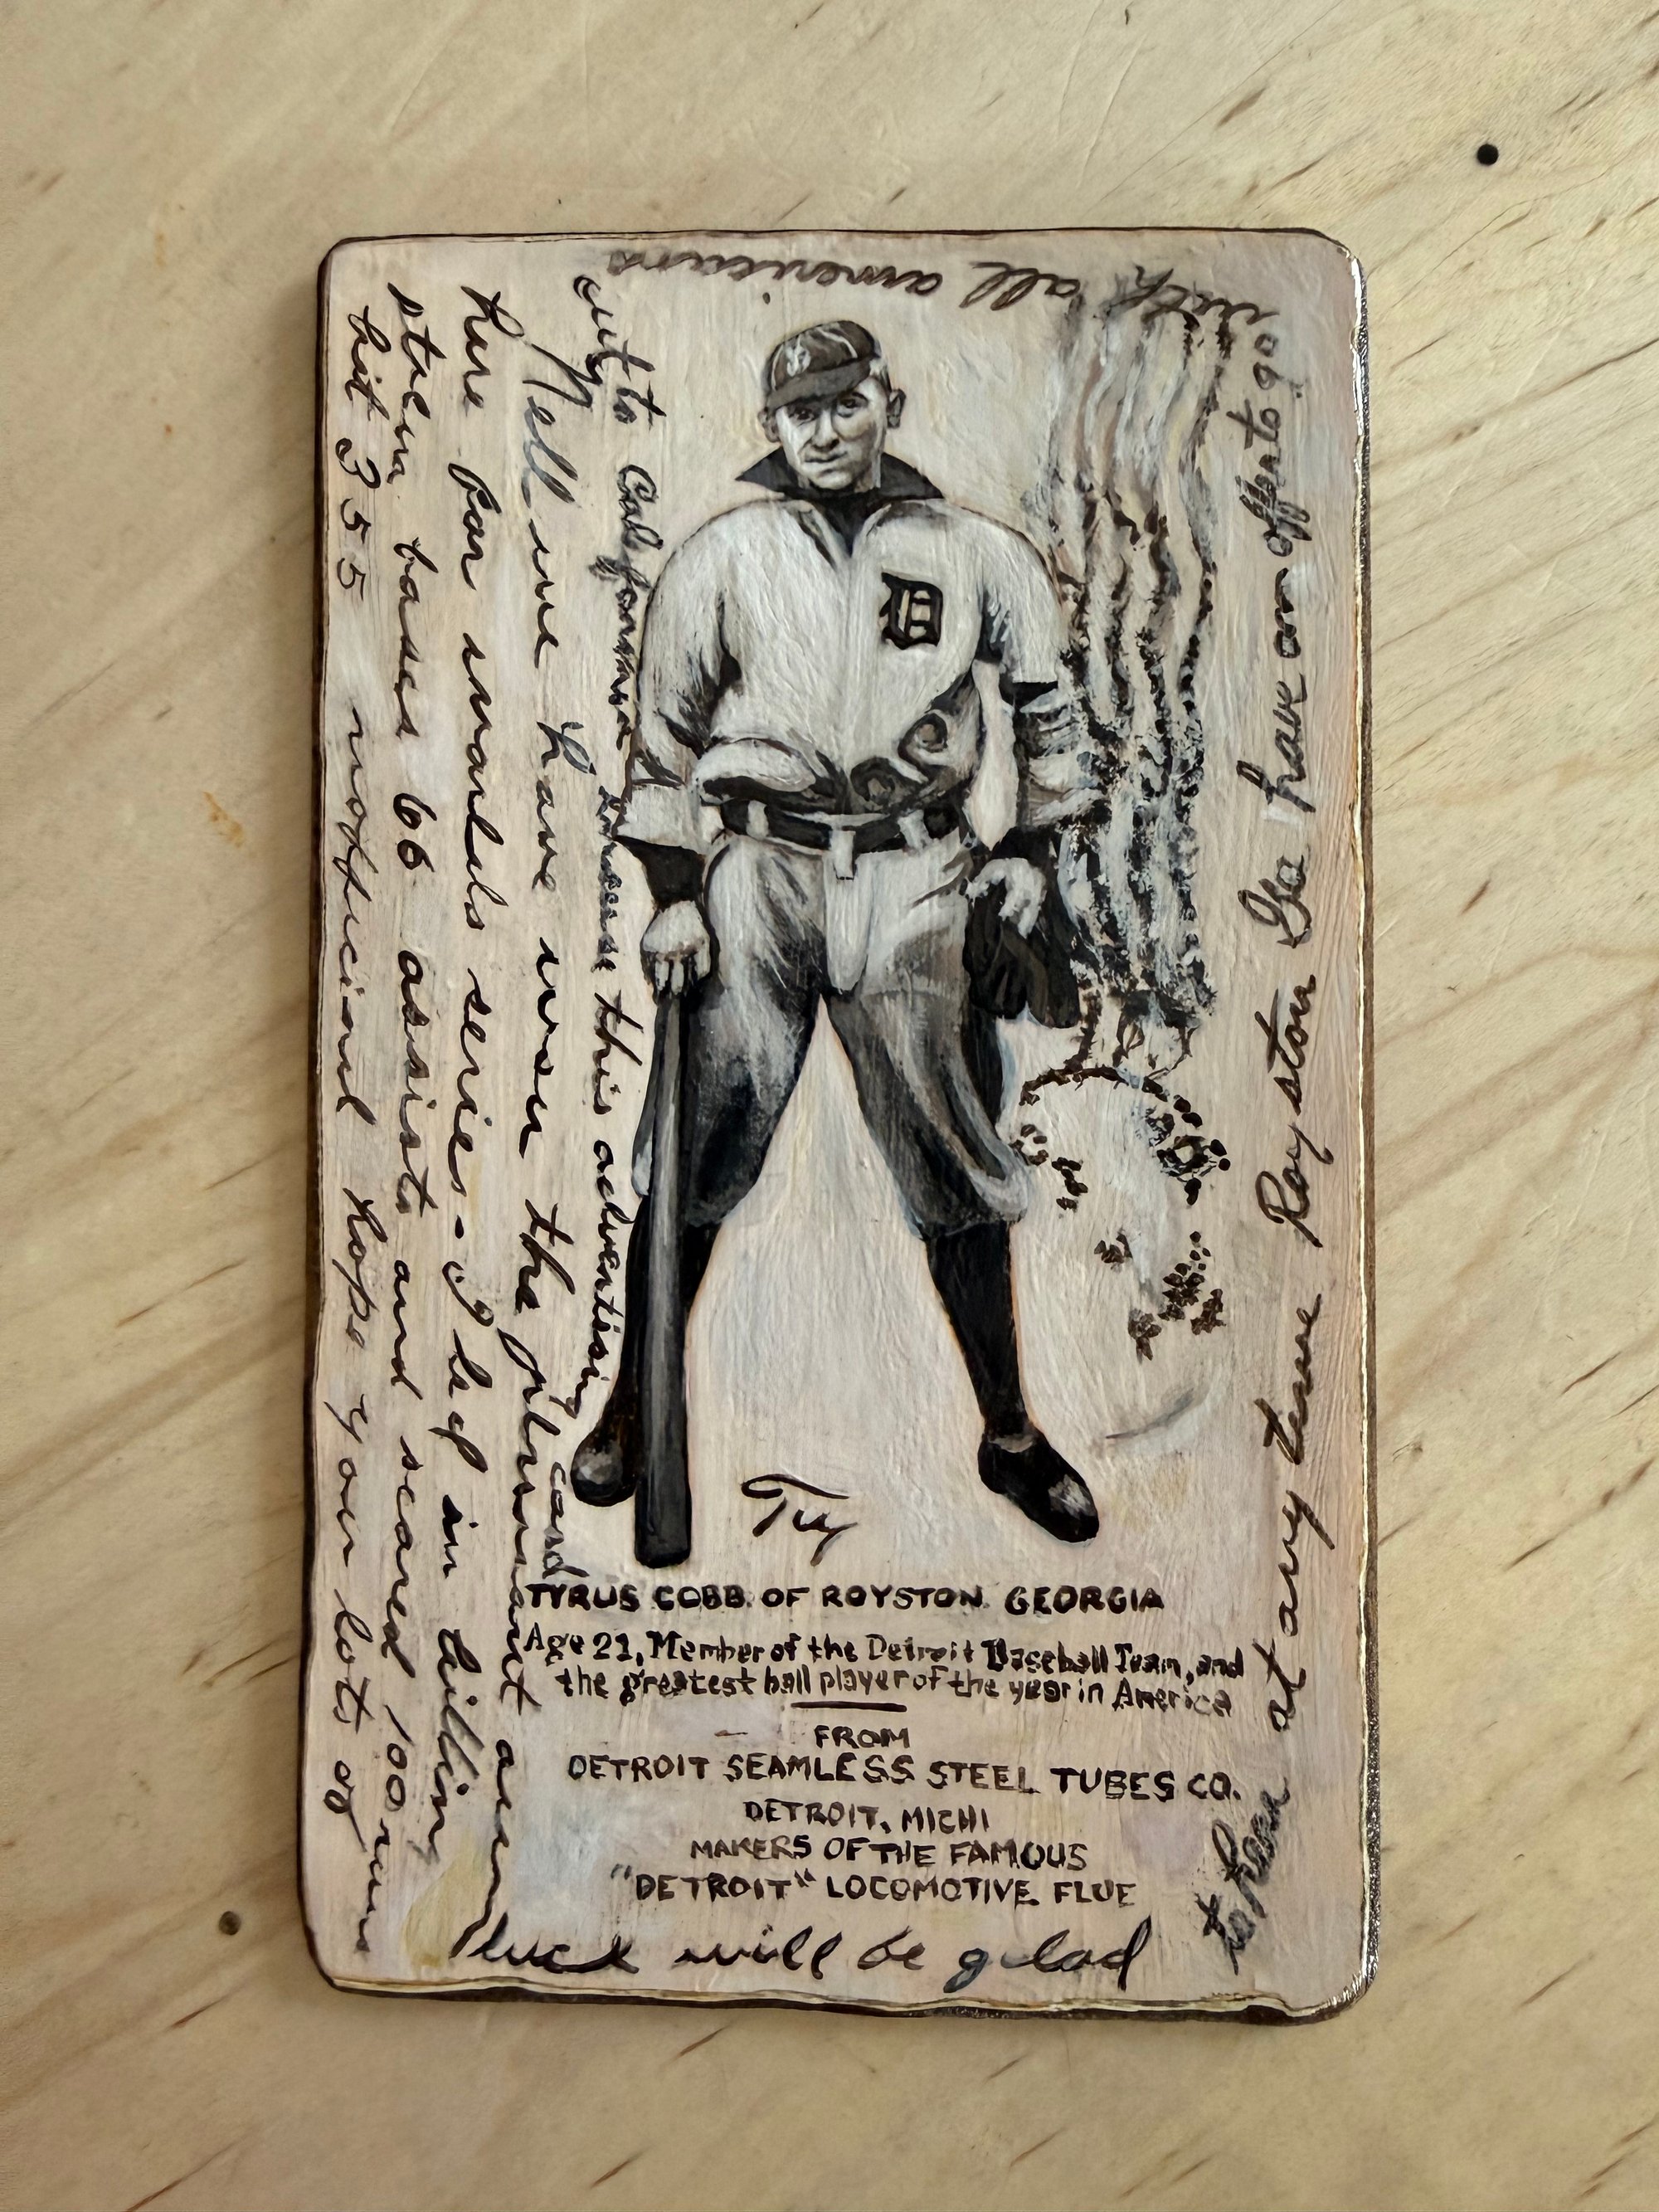 Well we have won the pennant again
here for worlds series - I led in hitting
stolen bases 66 assists and scored 100 runs
hit 355 unofficial hope you lots of
luck will be glad
to hear at any time Royston Ga have an offer to go
with all americans
out to California Excuse this advertising
card
D
Ty
TYRUS COBB. OF ROYSTON. GEORGIA
Age 21, Member of the Detroit Baseball Team, and
the greatest ball player of the year in America
FROM
DETROIT SEAMLESS STEEL TUBES CO.
DETROIT, MICHI
MAKERS OF THE FAMOUS
"DETROIT" LOCOMOTIVE FLUE